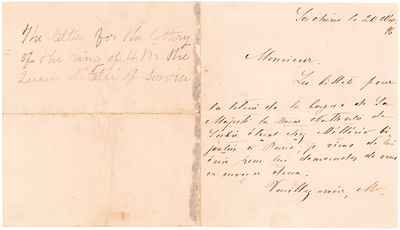 The letter for the lottery
of the ring of H.M. the
Queen Natalie of Servia
le 20
Monsieur.
Les billets pour
la loterie de la bague de Sa
Majesté la Reine Nathalie de
Serbie
à Paris, je viens de lui
écrire pour lui demander de vous
en envoyer deux.
Veuillez